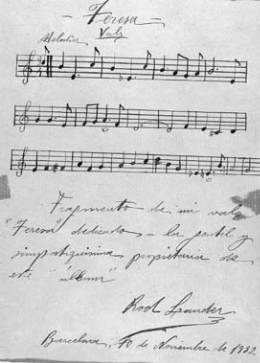 - Teresa -
Melodia Vals
Fragmento de mi vals
"Teresa" dedicado a la gentil y
simpatiquisima propietaria de
este "álbum"
Rod. Leander
Barcelona, 10 de Noviembre de 1932